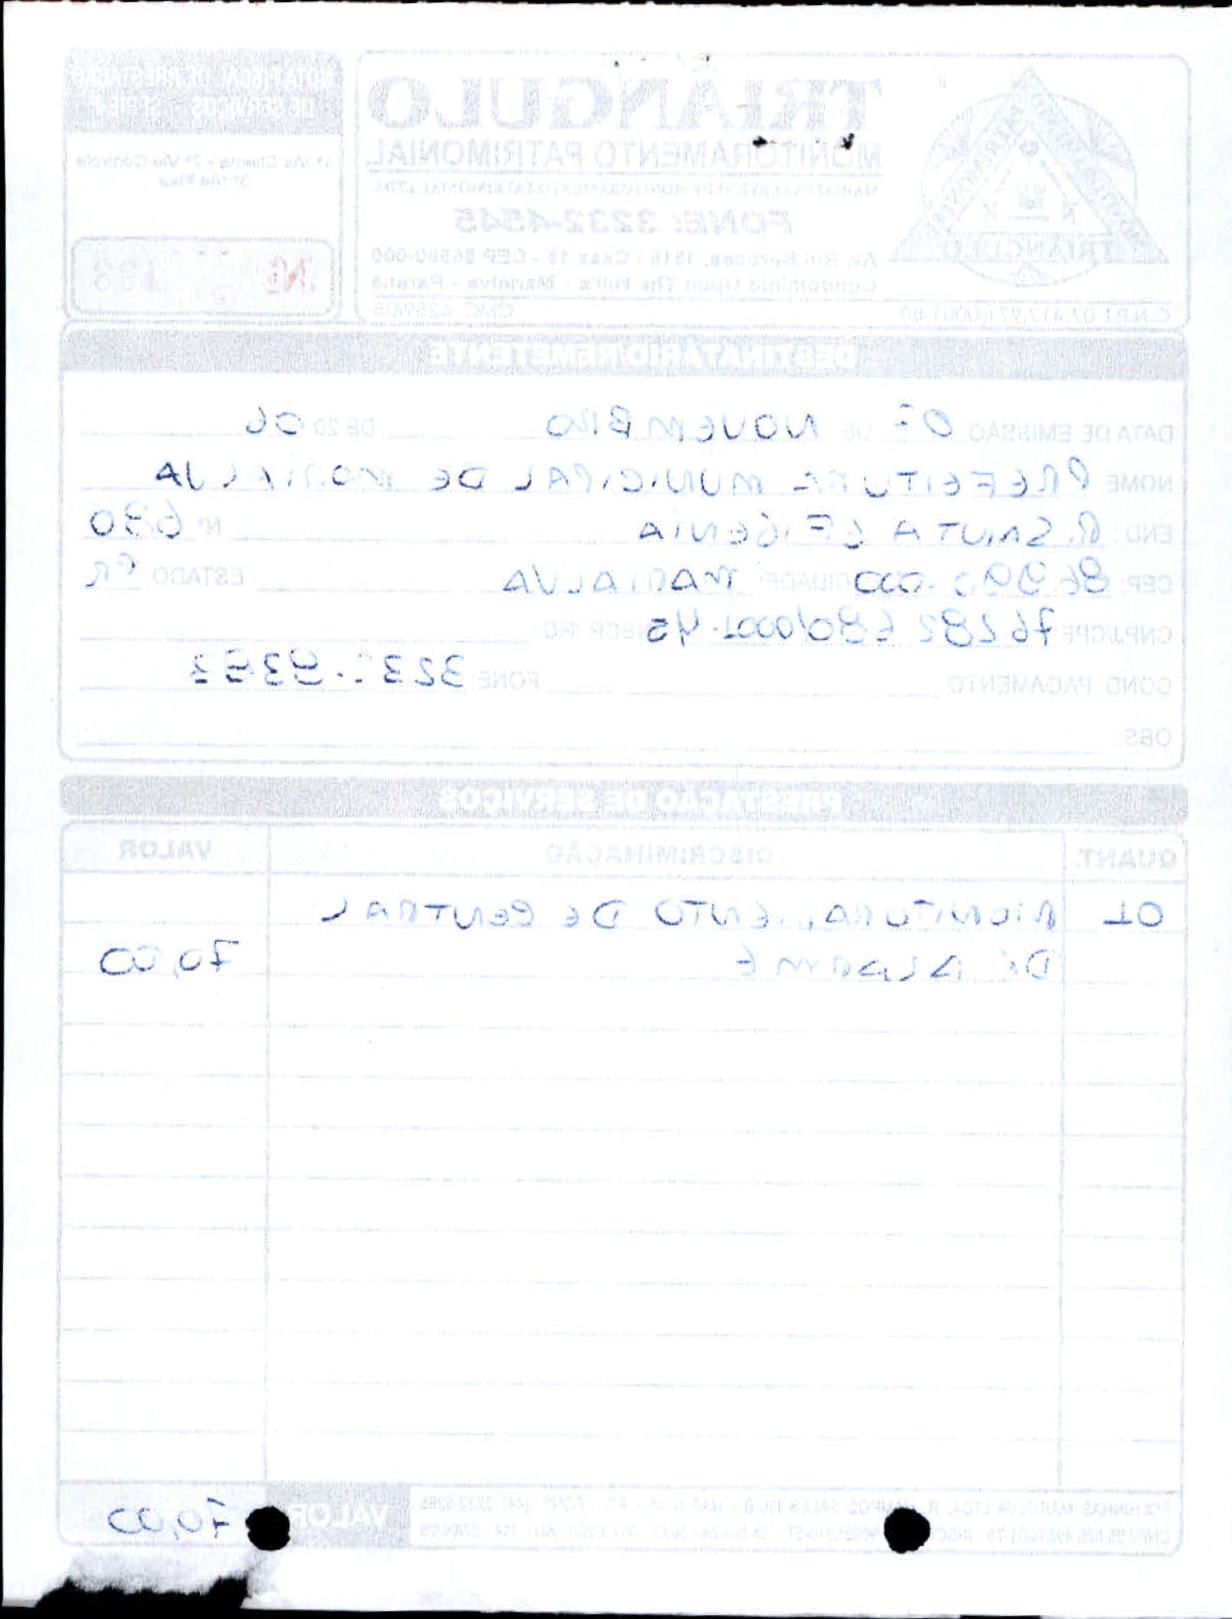 TRIÂNGULO
MONITORAMENTO PATRIMONIAL
FONE: 3232-4545
Av. Rui Barbosa, 1316 - Casa 18 - CEP 86990-000
Condominio Upon The Hill's - Marialva - Paraná
TRIANGULO
NOTA FISCAL DE PRESTAÇÃO
DE SERVIÇOS - SÉRIE F
1ª Via Cliente - 2ª Via Controle
3ª Via Fixa
Nº
DESTINATÁRIO REMETENTE
DATA DE EMISSÃO 07 DE NOVEMBRO DE 20 06
NOME: PREFEITURA MUNICIPAL DE MARIALVA
END: R. SANTA EFIGENIA Nº 680
CEP: 86990-000 CIDADE: MARIALVA ESTADO PR
CNPJ/CPF 76282680/0001-45
COND. PAGAMENTO FONE
OBS:
PRESTAÇÃO DE SERVIÇOS
QUANT. DISCRIMINAÇÃO VALOR
01 MONITORAMENTO DE CENTRAL
DE ALARME 70,00
VALOR 70,00